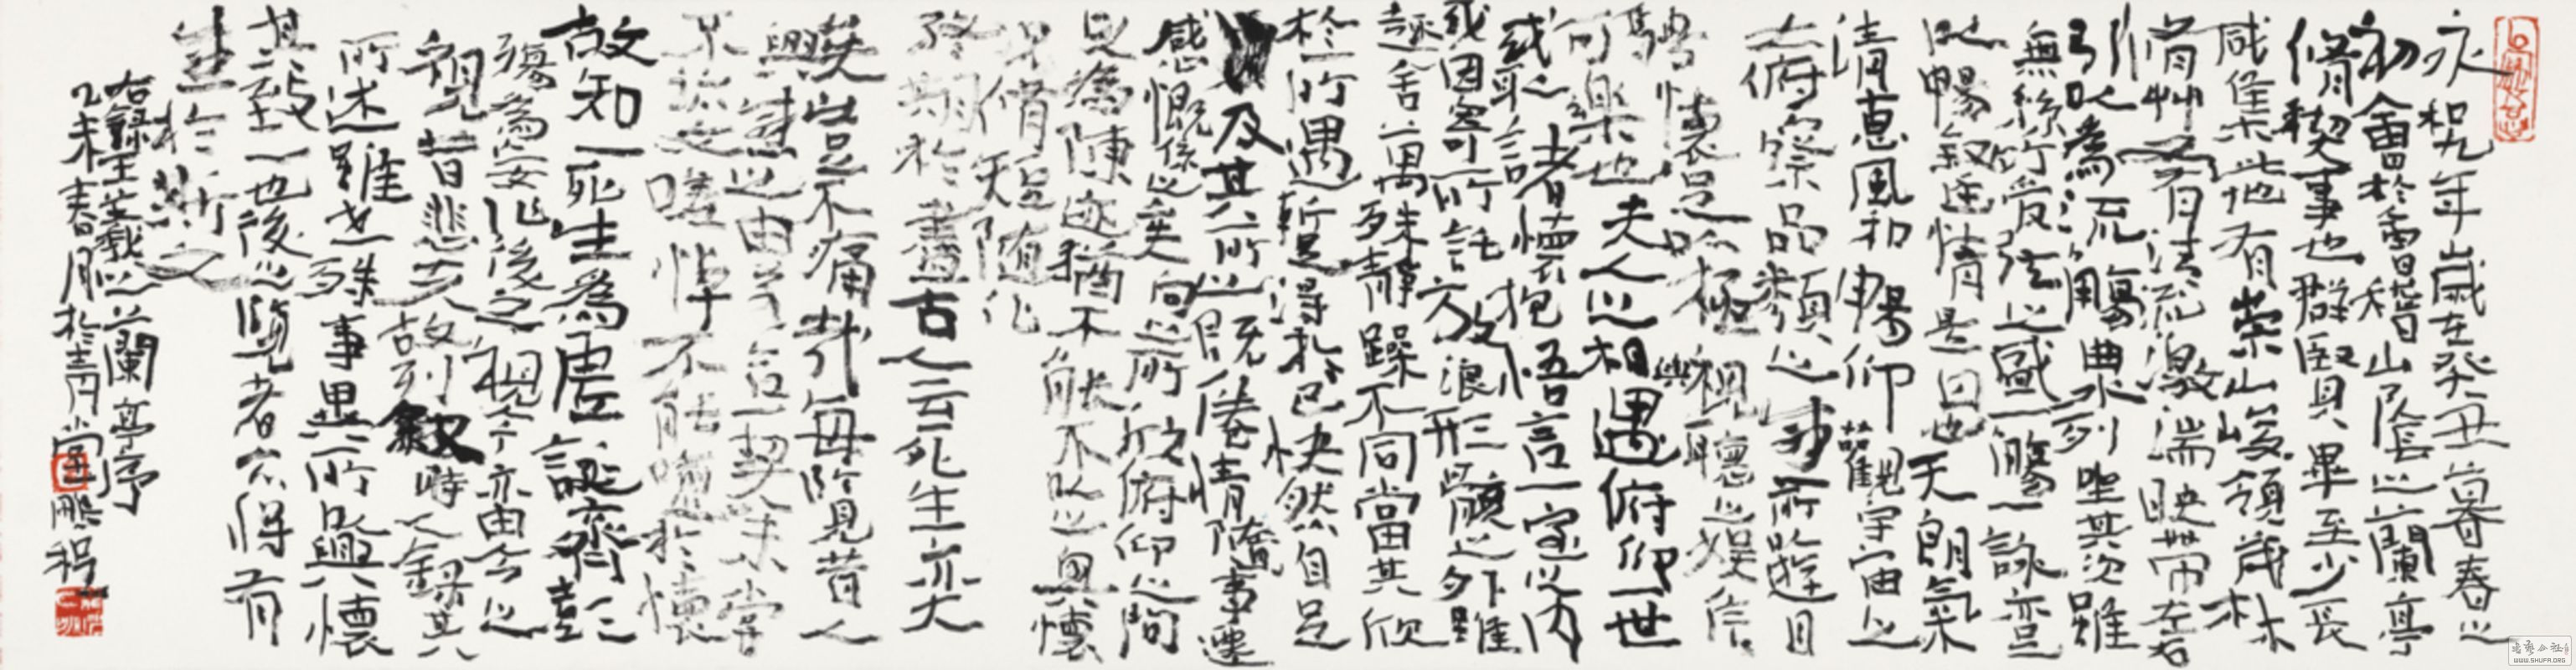 永和九年歲在癸丑暮春之
初會於會稽山陰之蘭亭
脩禊事也群賢畢至少長
咸集此地有崇山峻領茂林
脩竹又有清流激湍映帶左右
引以為流觴曲水列坐其次雖
無絲竹管弦之盛一觴一詠亦足
以暢敘幽情是日也天朗氣
清惠風和暢仰觀宇宙之
大俯察品類之盛所以遊目
騁懷足以極視聽之娛信
可樂也夫人之相與俯仰一世
或取諸懷抱悟言一室之內
或因寄所託放浪形骸之外雖
趣舍萬殊靜躁不同當其欣
於所遇暫得於己快然自足
及其所之既倦情隨事遷
感慨係之矣向之所欣俯仰之間
以為陳迹猶不能不以之興懷
況脩短隨化
終期於盡古人云死生亦大
矣豈不痛哉每覽昔人
興感之由若合一契未嘗
不臨文嗟悼不能喻於懷
故知一死生為虛誕齊彭
殤為妄作後之視今亦由今之
視昔悲夫故列敘時人錄其
所述雖世殊事異所興懷
其致一也後之覽者亦將有
感於斯文
右錄王羲之蘭亭序
乙未春月於青小堂鵬程
WWW.SHUFA.ORG